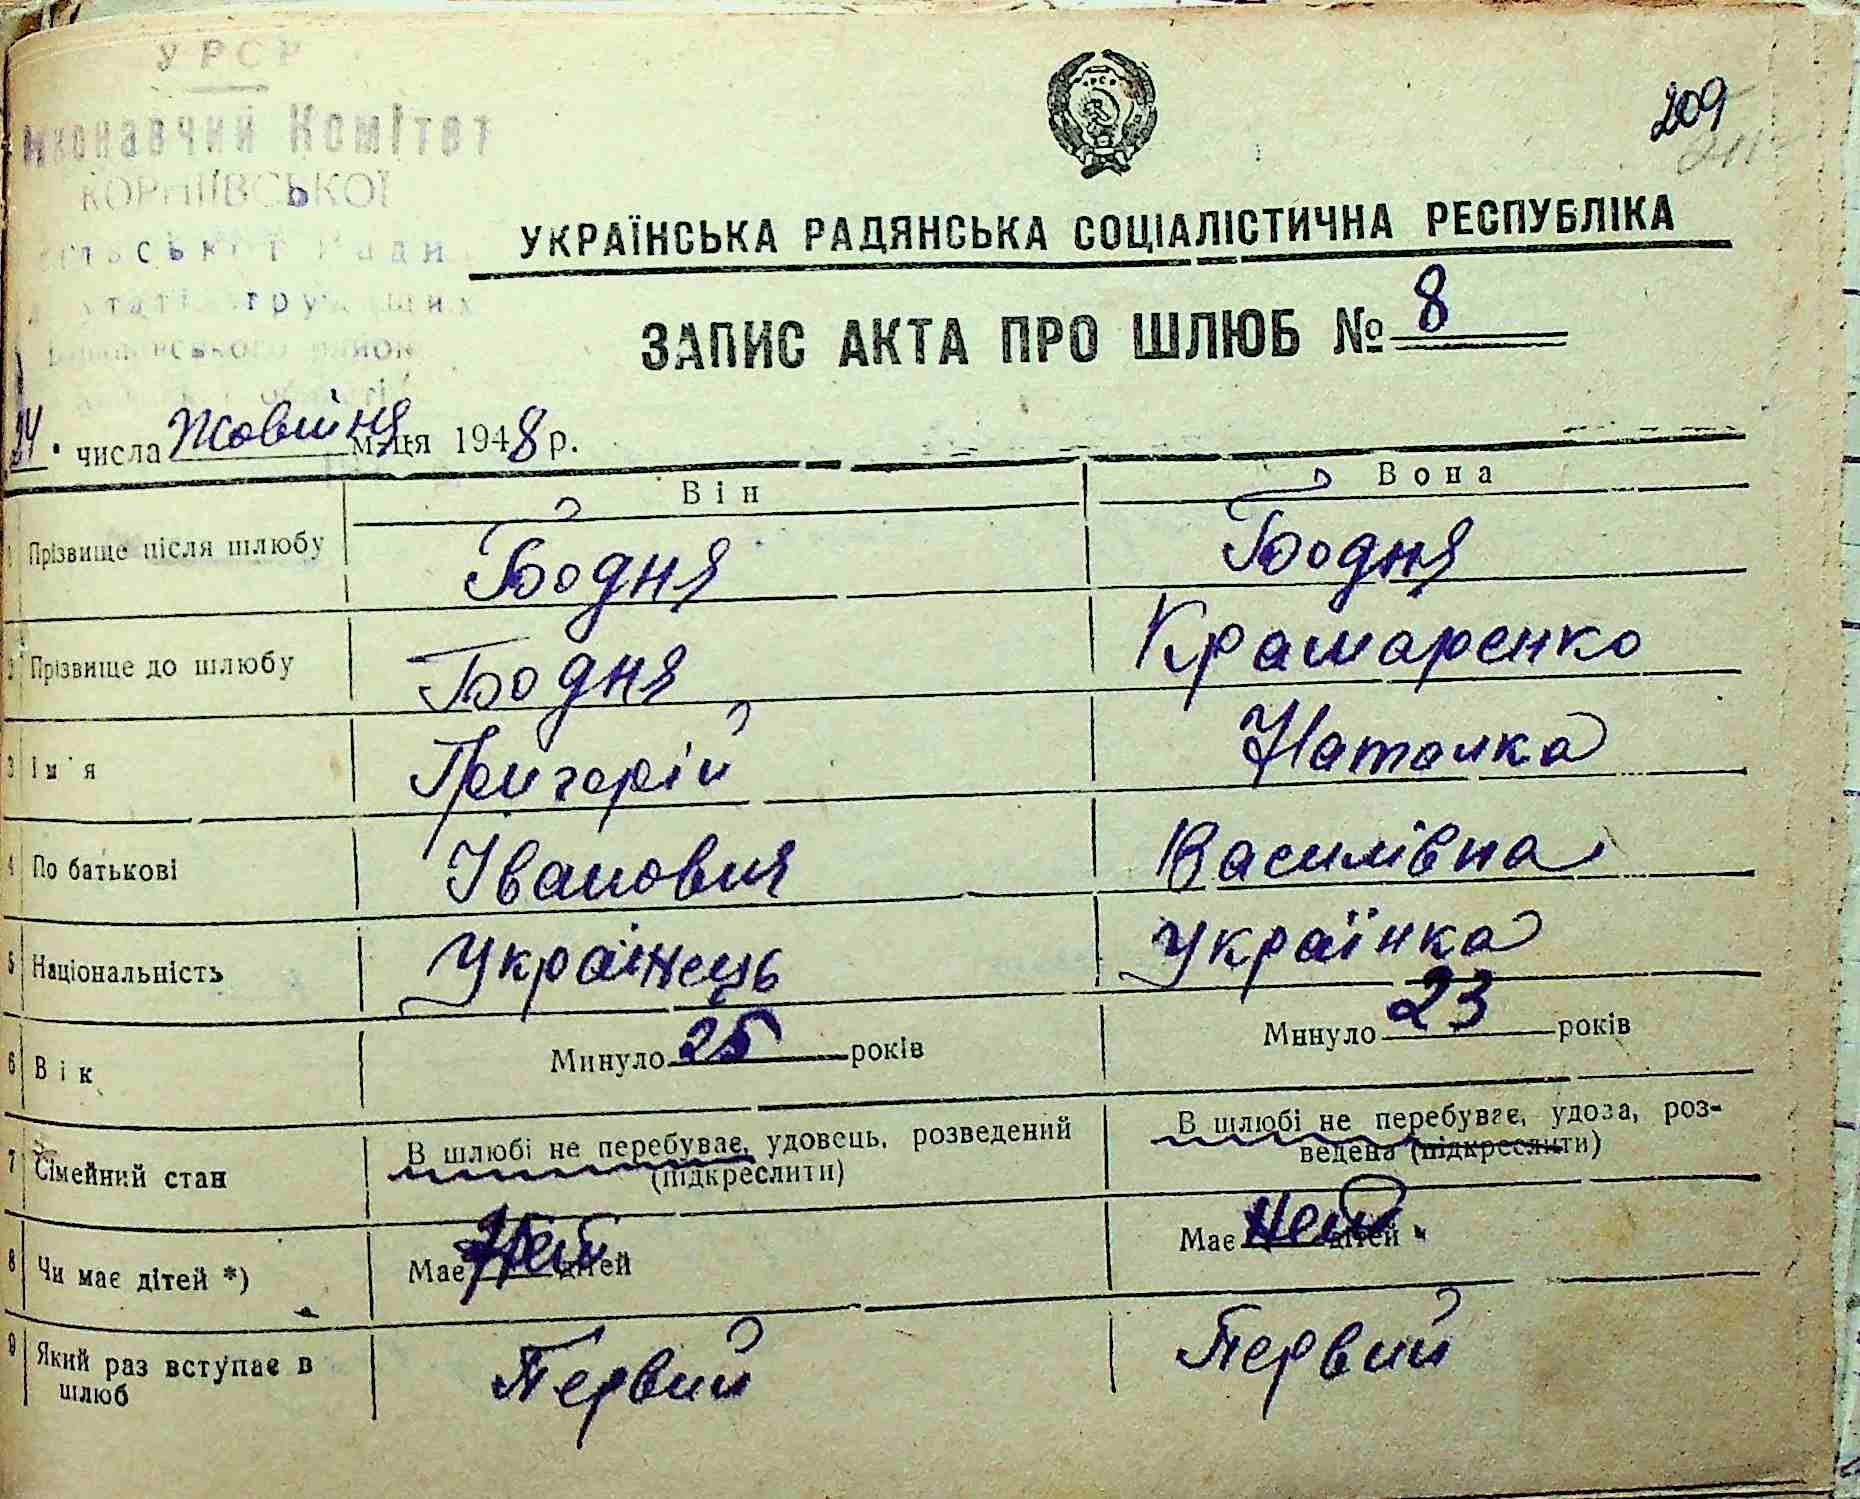 УРСР
Виконавчий Комітет
КОРНІЇВСЬКОЇ
сільської Ради
209
УКРАЇНСЬКА РАДЯНСЬКА СОЦІАЛІСТИЧНА РЕСПУБЛІКА
ЗАПИС АКТА ПРО ШЛЮБ № 8
24 числа Жовтня м-ця 1948 р.
Він Вона
1 Прізвище після шлюбу Бодня Бодня
2 Прізвище до шлюбу Бодня Крамаренко
3 Ім'я Григорій Наталка
4 По батькові Іванович Василівна
5 Національність Українець Українка
6 Вік Минуло 25 років Минуло 23 років
7 Сімейний стан В шлюбі не перебуває, удовець, розведений (підкреслити) В шлюбі не перебуває, удова, роз-
ведена (підкреслити)
8 Чи має дітей *) Має дітей Має дітей
9 Який раз вступає в Первий Первий
шлюб